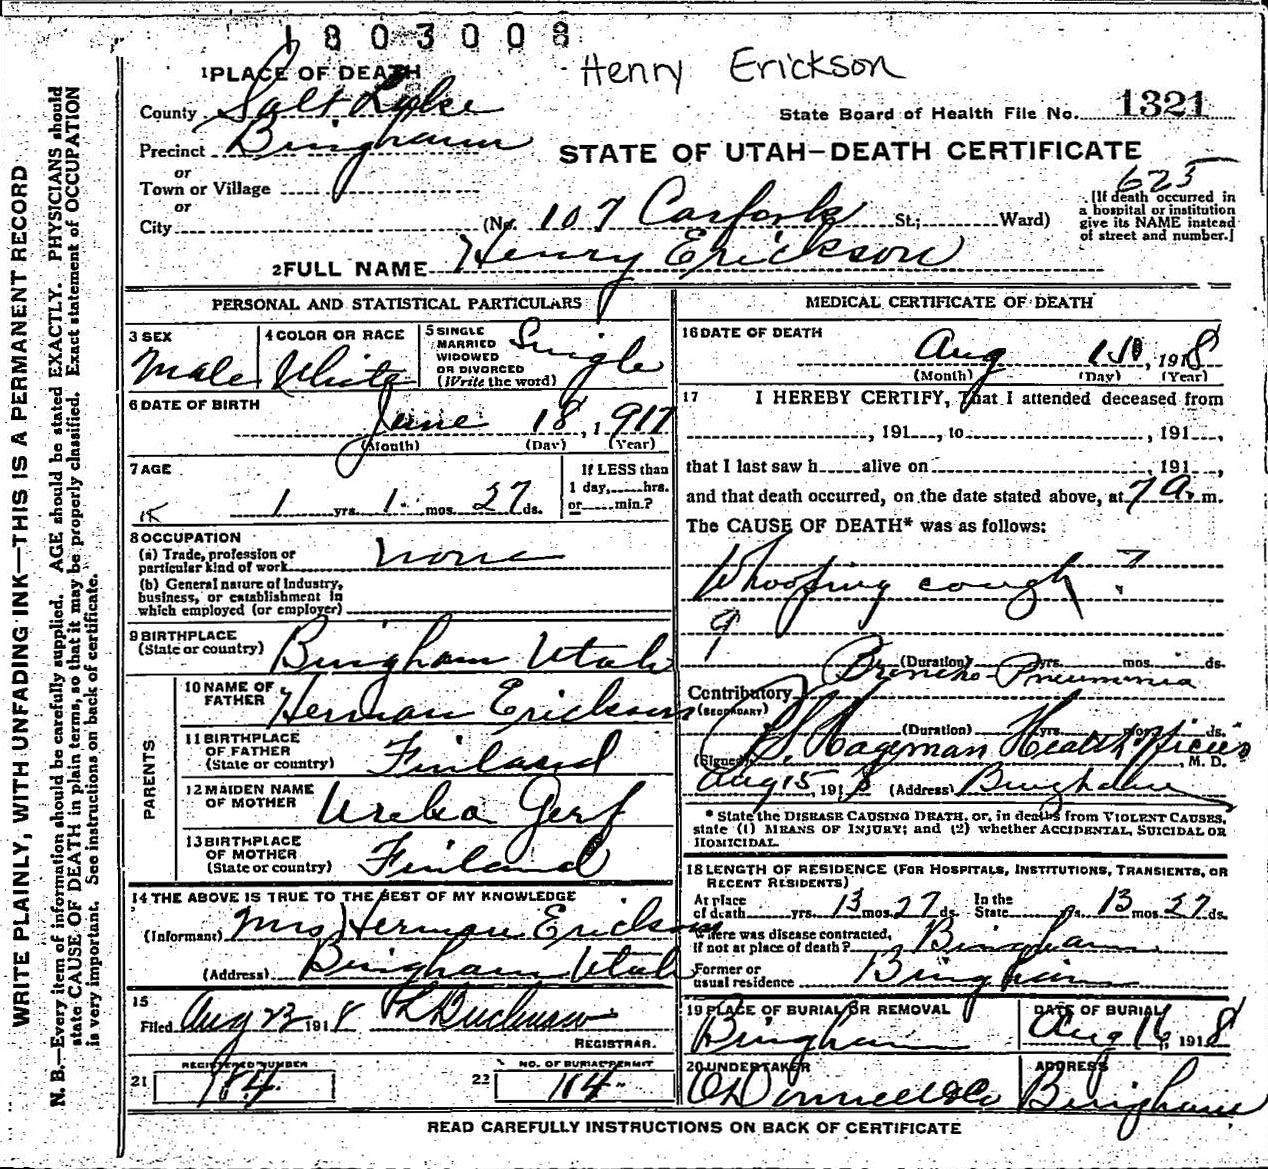 1803008
Henry Erickson
1 PLACE OF DEATH
County Salt Lake
State Board of Health File No. 1321
Precinct Bingham
STATE OF UTAH-DEATH CERTIFICATE
or
Town or Village
or
City
625
(No. 107 Carfork St; Ward)
[If death occurred in
a hospital or institution
give its NAME instead
of street and number.]
2 FULL NAME Henry Erickson
PERSONAL AND STATISTICAL PARTICULARS
3 SEX
Male
4 COLOR OR RACE
White
5 SINGLE
MARRIED
WIDOWED
OR DIVORCED
(Write the word)
Single
6 DATE OF BIRTH
June 18, 1917
(Month) (Day) (Year)
7 AGE
1 yrs. 1 mos. 27 ds.
If LESS than
1 day, hrs.
or min.?
8 OCCUPATION
(a) Trade, profession or
particular kind of work none
(b) General nature of Industry,
business, or establishment in
which employed (or employer)
9 BIRTHPLACE
(State or country) Bingham Utah
PARENTS
10 NAME OF
FATHER Herman Erickson
11 BIRTHPLACE
OF FATHER
(State or country) Finland
12 MAIDEN NAME
OF MOTHER Gerf
13 BIRTHPLACE
OF MOTHER
(State or country) Finland
14 THE ABOVE IS TRUE TO THE BEST OF MY KNOWLEDGE
(Informant) Mrs Herman Erickson
(Address) Bingham Utah
15
Filed Aug 23 1918
REGISTRAR.
21 REGISTERED NUMBER
184
22 NO. OF BURIAL PERMIT
184
MEDICAL CERTIFICATE OF DEATH
16 DATE OF DEATH
Aug 15, 1918
(Month) (Day) (Year)
17 I HEREBY CERTIFY, That I attended deceased from
, 191 , to , 191 ,
that I last saw h alive on 191 ,
and that death occurred, on the date stated above, at 7 A. m.
The CAUSE OF DEATH* was as follows:
Whooping cough ?
9
(Duration) yrs. mos. ds.
Contributory Broncho-Pneumonia
(SECONDARY)
(Duration) yrs. mos. ds.
(Signed) Hageman Health Officer M. D.
Aug 15, 1918 (Address) Bingham
* State the DISEASE CAUSING DEATH, or, in deaths from VIOLENT CAUSES,
state (1) MEANS OF INJURY; and (2) whether ACCIDENTAL, SUICIDAL OR
HOMICIDAL.
18 LENGTH OF RESIDENCE (FOR HOSPITALS, INSTITUTIONS, TRANSIENTS, OR
RECENT RESIDENTS)
At place
of death yrs. 13 mos. 27 ds. In the
State yrs. 13 mos. 27 ds.
Where was disease contracted,
if not at place of death? Bingham
Former or
usual residence Bingham
19 PLACE OF BURIAL OR REMOVAL
Bingham
DATE OF BURIAL
Aug 16, 1918
20 UNDERTAKER
O'Donnell & Co
ADDRESS
Bingham
READ CAREFULLY INSTRUCTIONS ON BACK OF CERTIFICATE
WRITE PLAINLY, WITH UNFADING INK—THIS IS A PERMANENT RECORD
N. B.—Every item of information should be carefully supplied. AGE should be stated EXACTLY. PHYSICIANS should
state CAUSE OF DEATH in plain terms, so that it may be properly classified. Exact statement of OCCUPATION
is very important. See instructions on back of certificate.